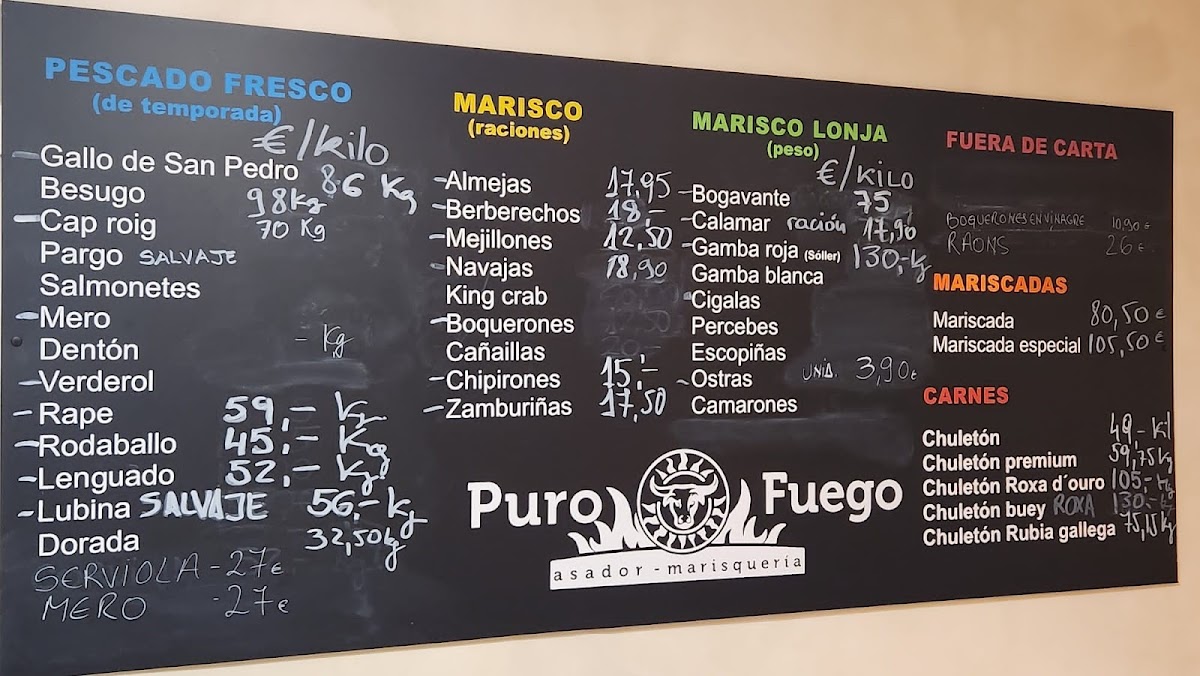 PESCADO FRESCO
(de temporada)
€/kilo
Gallo de San Pedro 86 Kg
Besugo 98 kg
Cap roig 70 Kg
Pargo SALVAJE
Salmonetes
Mero
Dentón - Kg
Verderol
Rape 59,- Kg
Rodaballo 45,- Kg
Lenguado 52,- Kg
Lubina SALVAJE 56,- kg
Dorada 32,50 kg
SERVIOLA - 27€
MERO - 27€
MARISCO
(raciones)
Almejas 17,95
Berberechos 18,-
Mejillones 12,50
Navajas 18,90
King crab
Boquerones
Cañaillas
Chipirones 15,-
Zamburiñas 17,50
MARISCO LONJA
(peso)
€/KILO
Bogavante 75
Calamar ración 17,90
Gamba roja (Sóller) 130,- Kg
Gamba blanca
Cigalas
Percebes
Escopiñas
Ostras UNID. 3,90€
Camarones
Puro Fuego
asador - marisquería
FUERA DE CARTA
BOQUERONES EN VINAGRE 10,90€
RAONS 26€
MARISCADAS
Mariscada 80,50€
Mariscada especial 105,50€
CARNES
Chuletón 49,- Kil
Chuletón premium 59,75 Kg
Chuletón Roxa d´ouro 105,- Kg
Chuletón buey ROXA 130,- Kg
Chuletón Rubia gallega 75,15 Kg